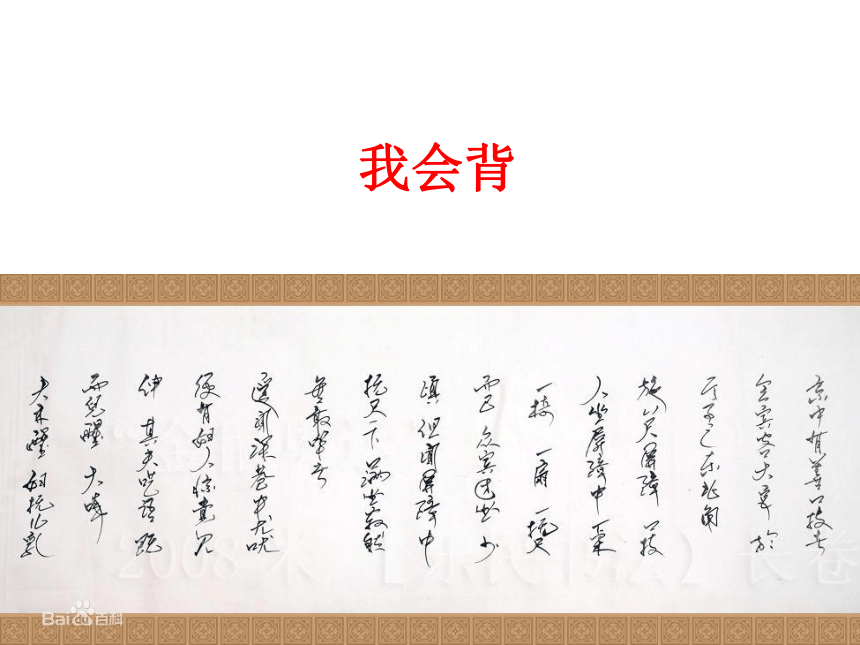 我会背
京中有善口技者
会宾客大宴 於
厅事之东北角
施八尺屏障 口技
人坐屏障中 一桌
一椅 一扇 一抚尺
而已 众宾团坐 少
顷 但闻屏障中
抚尺一下 满坐寂然
无敢哗者
遥闻深巷中犬吠
便有妇人惊觉欠
伸 其夫呓语 既
而儿醒 大啼
夫亦醒 妇抚儿乳
Bai百科